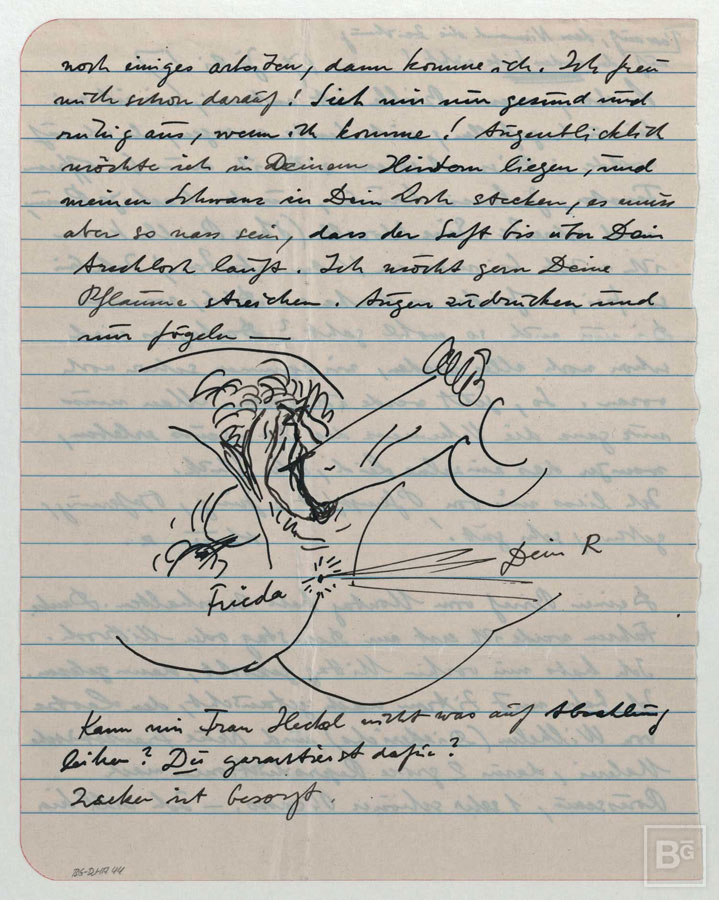 noch einiges arbeiten, dann komme ich. Ich freu
mich schon darauf! Sieh mir nur gesund und
ruhig aus, wenn ich komme! Augenblicklich
möchte ich in Deinem Hintern liegen, und
meinen Schwanz in Dein Loch stecken, es muss
aber so nass sein, dass der Saft bis über Dein
Arschloch läuft. Ich möcht gern Deine
Pflaume streichen. Augen zudrücken und
nur fögeln —
Dein R
Frieda
Kann mir Frau Heckel nicht was auf Abzahlung
leihen? Du garantierst dafür?
Zucker ist besorgt.
BG-RHA 44
BG